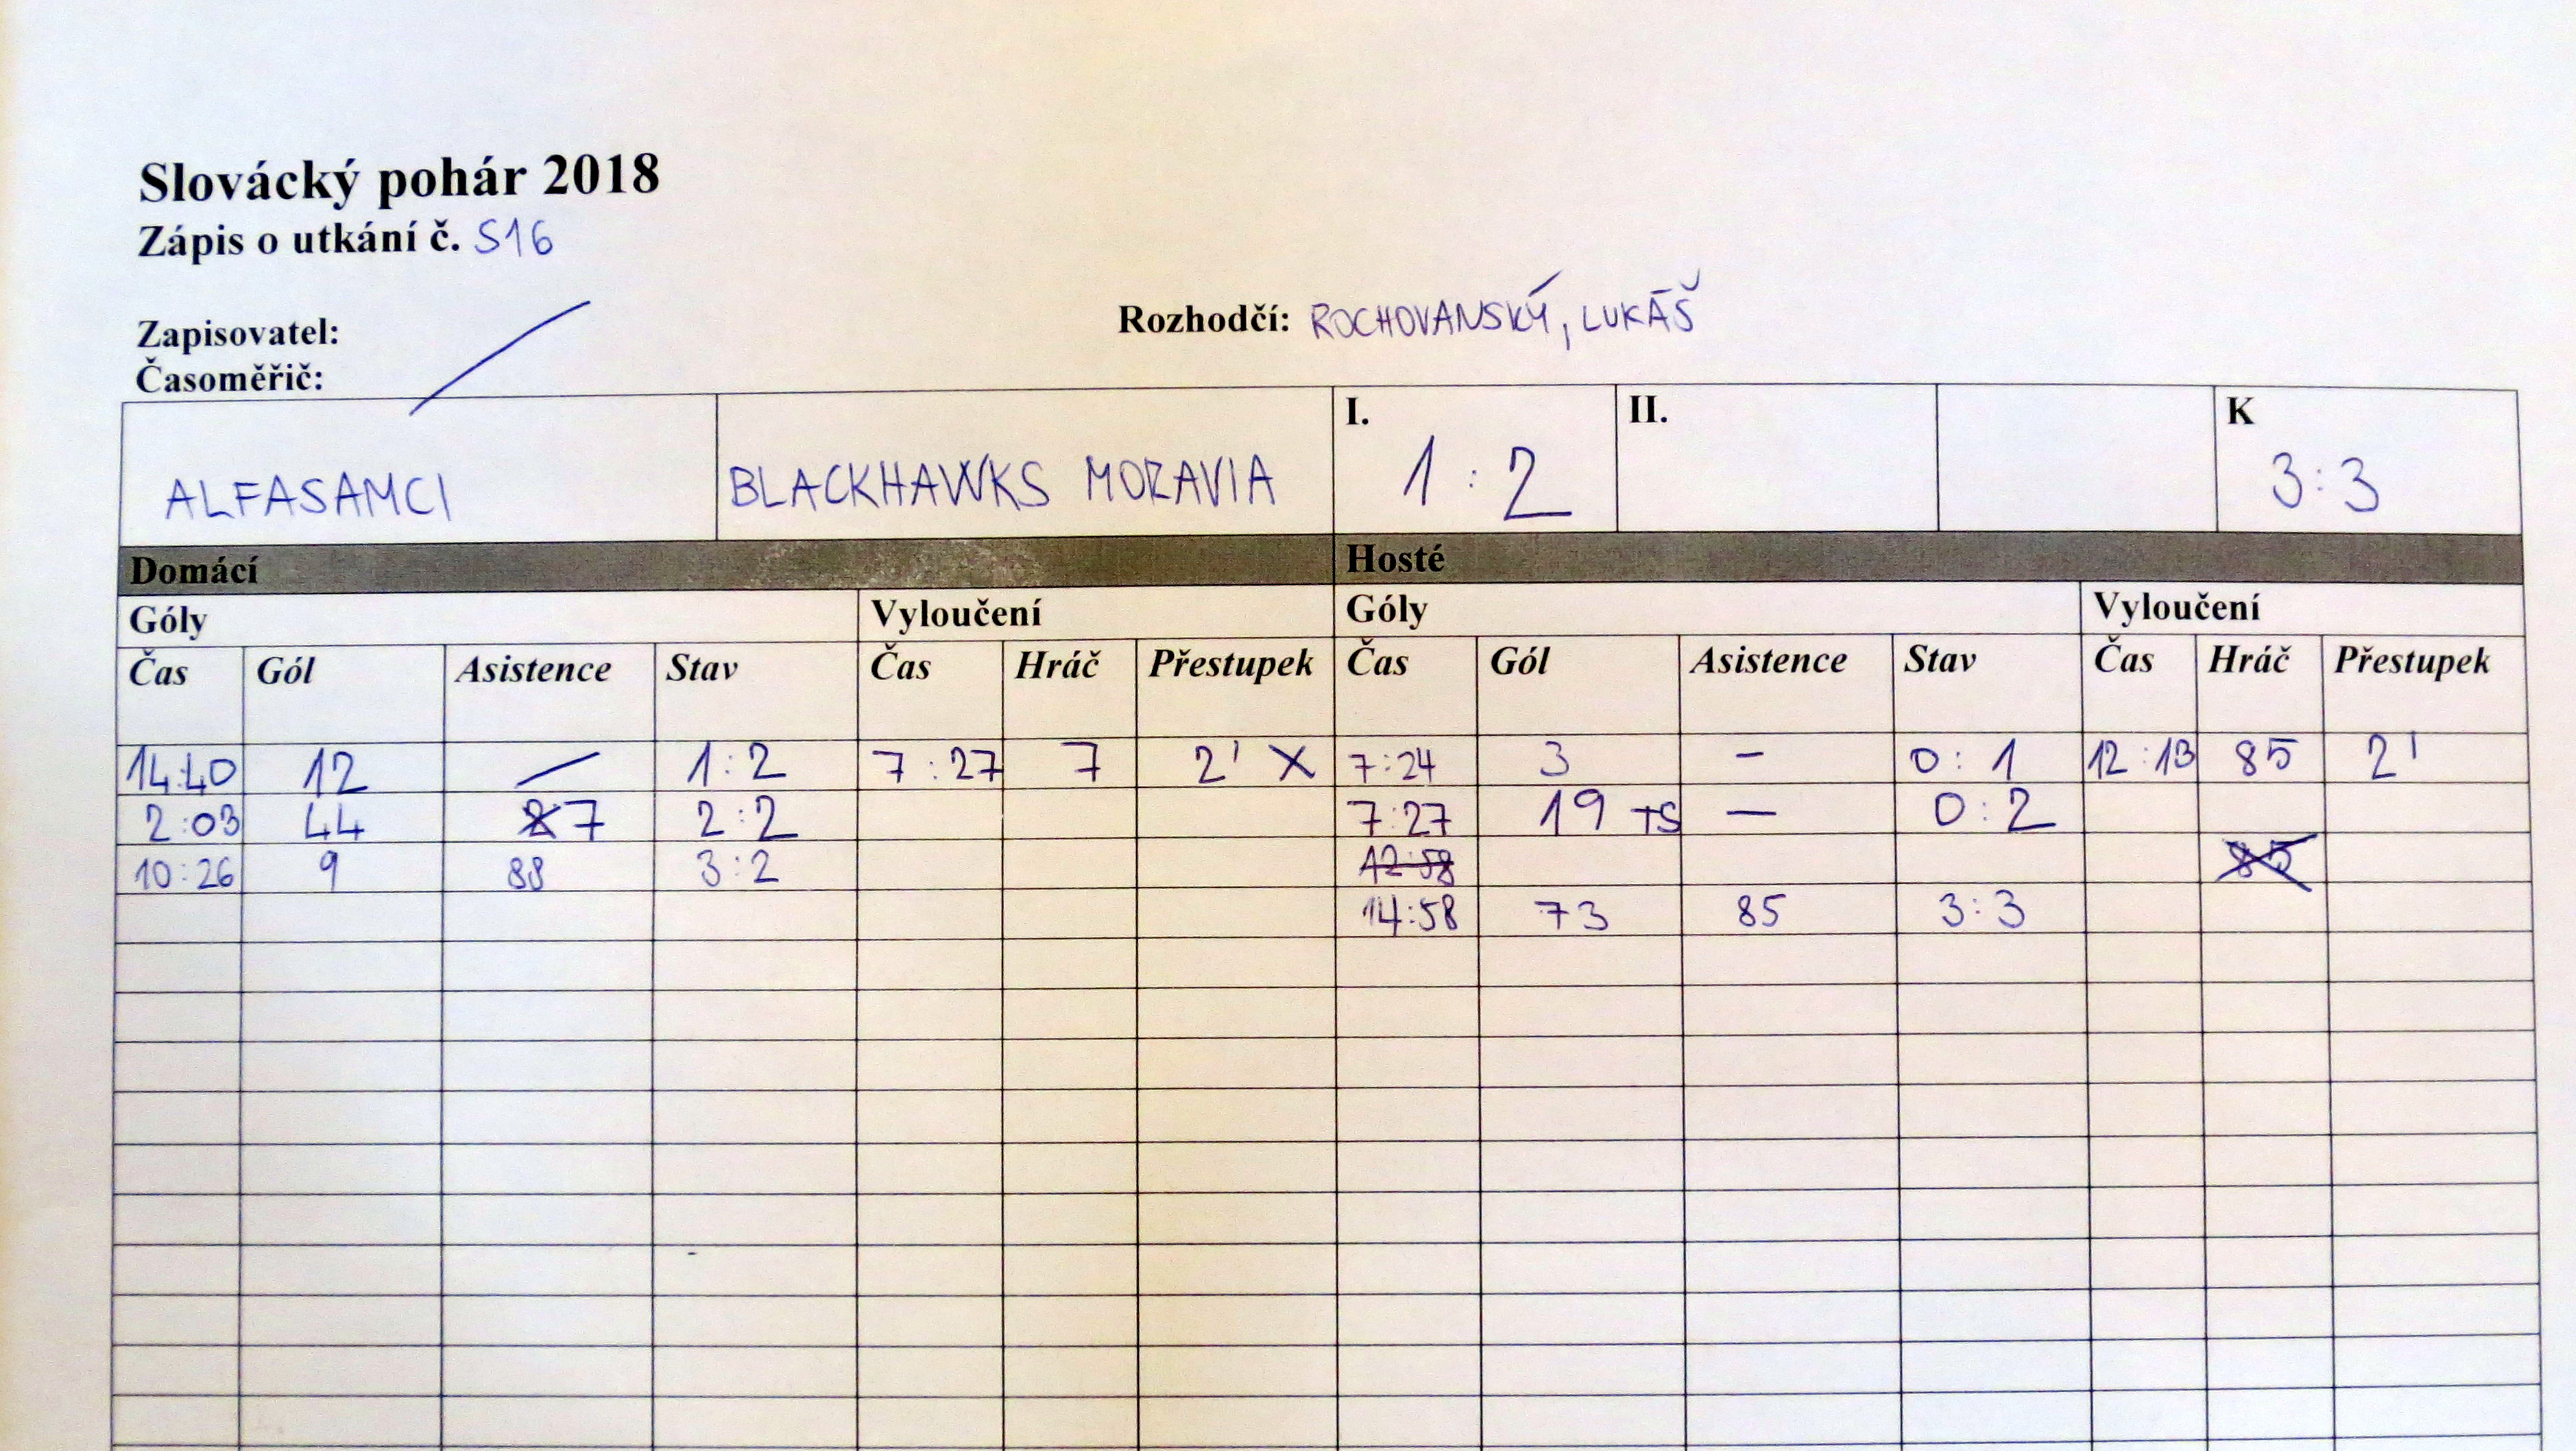 Slovácký pohár 2018
Zápis o utkání č. S16
Zapisovatel:
Rozhodčí: ROCHOVANSKÝ, LUKÁŠ
Časoměřič:
ALFASAMCI BLACKHAWKS MORAVIA I. 1:2 II. K 3:3
Domácí Hosté
Góly Vyloučení Góly Vyloučení
Čas Gól Asistence Stav Čas Hráč Přestupek Čas Gól Asistence Stav Čas Hráč Přestupek
14:40 12 — 1:2 7:27 7 2' X 7:24 3 - 0:1 12:13 85 2'
2:03 44 7 2:2 7:27 19 TS — 0:2
10:26 9 88 3:2 12:58 85
14:58 73 85 3:3